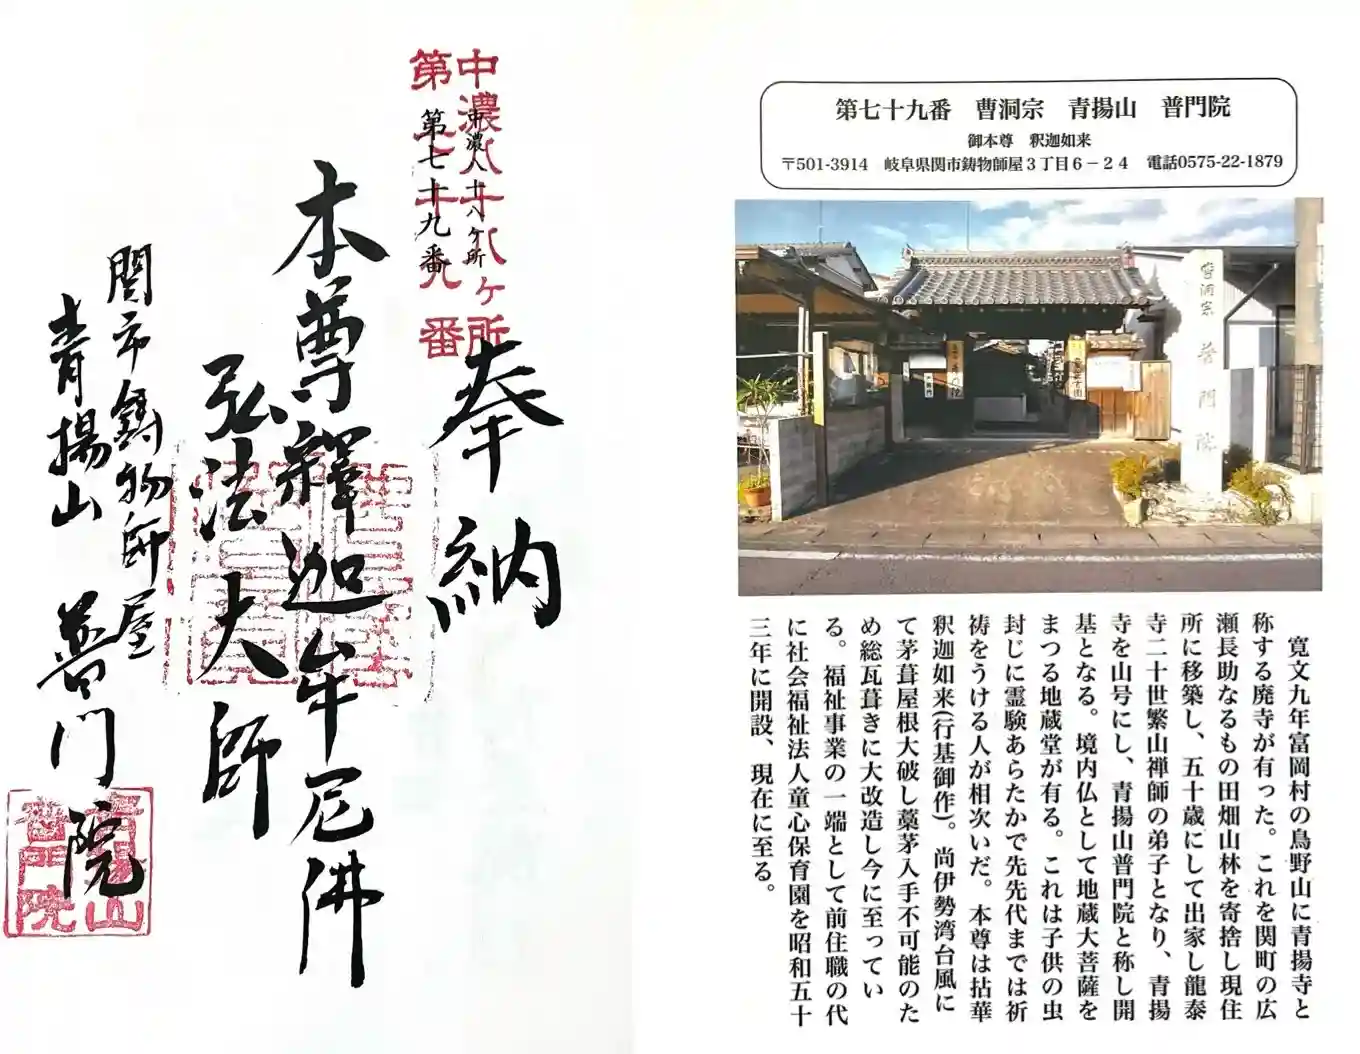 中濃八十八ヶ所
第七十九番
中濃八十八ヶ所
第七十九番
奉納
本尊釋迦牟尼佛
弘法大師
関市鋳物師屋
青揚山 普門院
青揚山
普門院
第七十九番 曹洞宗 青揚山 普門院
御本尊 釈迦如来
〒501-3914 岐阜県関市鋳物師屋3丁目6-24 電話0575-22-1879
曹洞宗 普門院
寛文九年富岡村の鳥野山に青揚寺と
称する廃寺が有った。これを関町の広
瀬長助なるもの田畑山林を寄捨し現住
所に移築し、五十歳にして出家し龍泰
寺二十世繁山禅師の弟子となり、青揚
寺を山号にし、青揚山普門院と称し開
基となる。境内仏として地蔵大菩薩を
まつる地蔵堂が有る。これは子供の虫
封じに霊験あらたかで先先代までは祈
祷をうける人が相次いだ。本尊は拈華
釈迦如来(行基御作)。尚伊勢湾台風に
て茅葺屋根大破し藁茅入手不可能のた
め総瓦葺きに大改造し今に至ってい
る。福祉事業の一端として前住職の代
に社会福祉法人童心保育園を昭和五十
三年に開設、現在に至る。